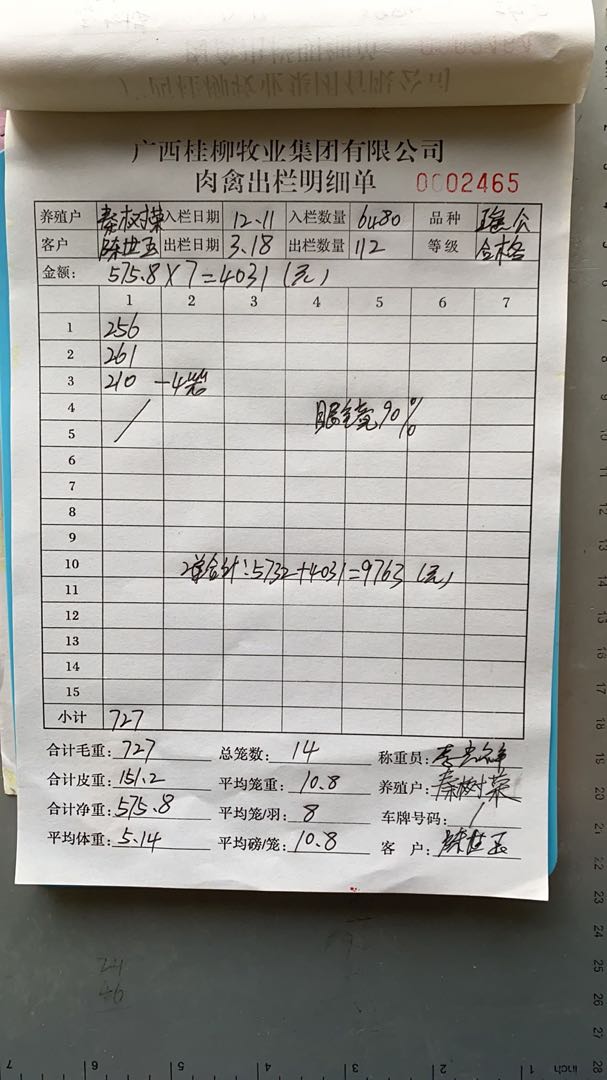 广西桂柳牧业集团有限公司
肉禽出栏明细单 0002465
养殖户 秦树荣 入栏日期 12.11 入栏数量 6480 品种 瑶公
客户 陈世玉 出栏日期 3.18 出栏数量 112 等级 合格
金额: 575.8×7=4031(元)
1 2 3 4 5 6 7
1 256
2 261
3 210 -4笼
4 眼睛90%
5
6
7
8
9
10 2单合计:5732+4031=9763(元)
11
12
13
14
15
小计 727
合计毛重: 727 总笼数: 14 称重员:
合计皮重: 151.2 平均笼重: 10.8 养殖户: 秦树荣
合计净重: 575.8 平均笼/羽: 8 车牌号码: /
平均体重: 5.14 平均磅/笼: 10.8 客户: 陈世玉